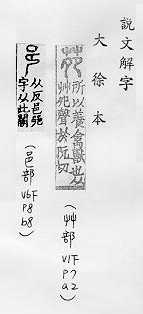 說文解字
大徐本
苑
所以養禽獸也从
艸夗聲於阮切
(艸部 V1F P7 a2)
从反邑
字从此闕
(邑部 V6F P8 b8)